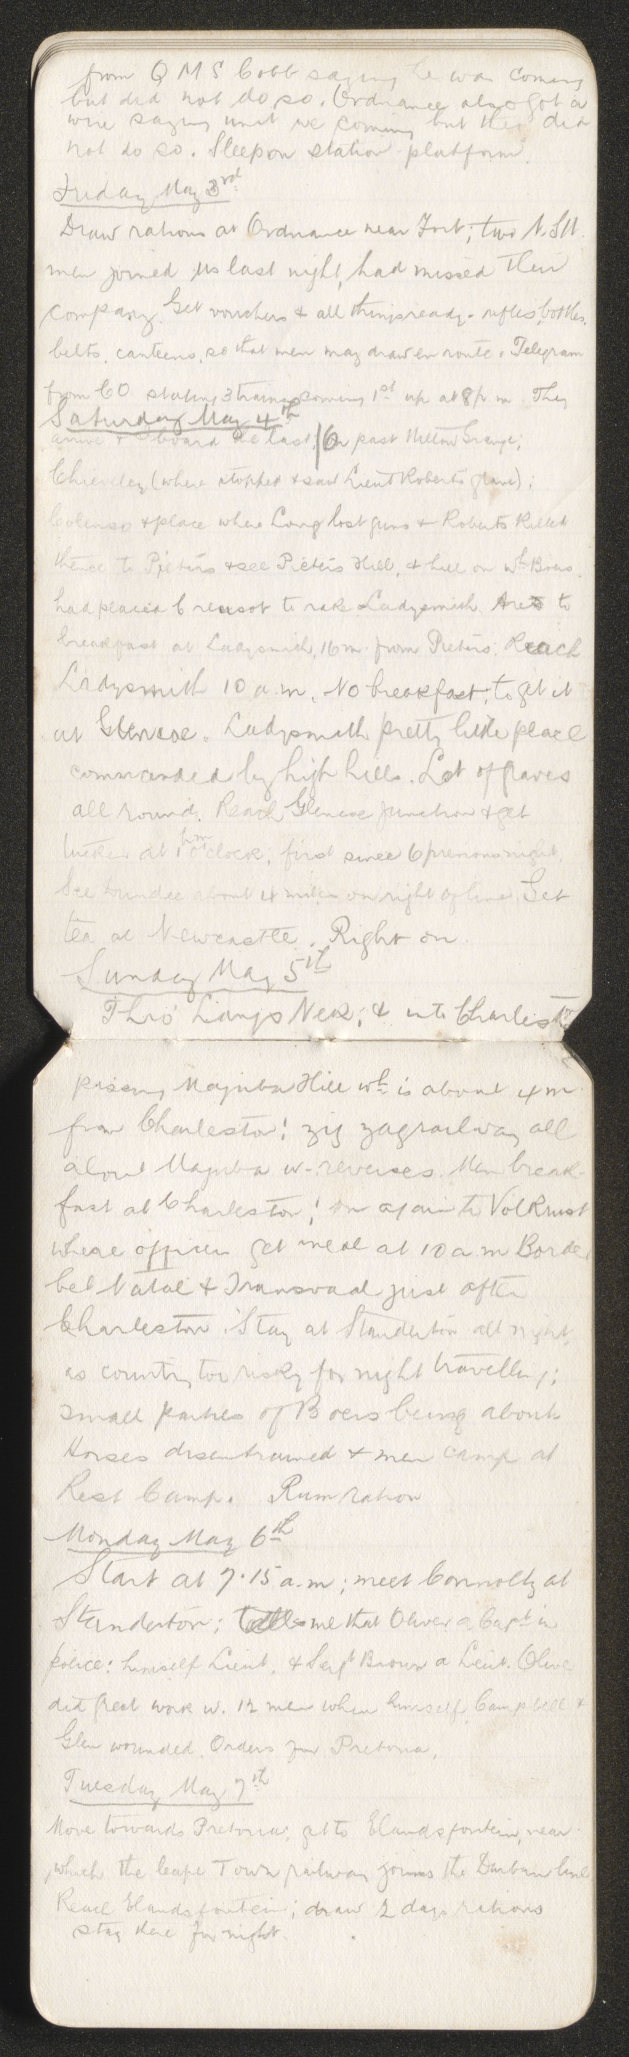 from Q M S Cobb saying he was coming
but did not do so. Ordnance also got a
wire saying unit we coming but they did
not do so. Sleep on station platform.
Friday May 3rd
Draw rations at Ordnance near Fort; two N.S.W.
men joined us last night, had missed their
company. Get vouchers & all things ready - rifles, bottles,
belts, canteens, so that men may draw en route. Telegram
from CO stating 3 trains coming 1st up at 8 p m. They
Saturday May 4th
arrive & board the last/ On past Mooi Grange;
Chieveley (where stopped & saw Lieut Roberts grave);
Colenso & place where Long lost guns & Roberts killed
thence to Pieters & see Pieters Hill, & hill on wh Boers
had placed Creusot to rake Ladysmith. Are to
breakfast at Ladysmith, 16 m from Pieters. Reach
Ladysmith 10 a.m. No breakfast; to get it
at Glencoe. Ladysmith pretty little place
commanded by high hills. Lot of graves
all round. Reach Glencoe Junction & get
tucker at 1 pm o'clock, first since 6 previous night.
See Dundee about 4 miles on right of line. Get
tea at Newcastle. Right on
Sunday May 5th
Thro' Laings Nek; & into Charleston
passing Majuba Hill wh is about 4 m
from Charleston; zig zag railway all
about Majuba w. reverses. Men break-
fast at Charleston; on again to Volkrust
where officers get meal at 10 a.m Border
bet Natal & Transvaal just after
Charleston. Stay at Standerton all night,
as country too risky for night travelling;
small parties of Boers being about
Horses disentrained & men camp at
Rest Camp. Rum ration
Monday May 6th
Start at 7.15 a.m; meet Connolly at
Standerton; tells me that Oliver a Capt in
police; himself Lieut, & Sergt Brown a Lieut. Oliver
did great work w. 12 men when himself, Campbell &
Glen wounded. Orders for Pretoria.
Tuesday May 7th
Move towards Pretoria; get to Elandsfontein, near
which the Cape Town railway joins the Durban line
Reach Elandsfontein; draw 2 days rations
stay there for night.